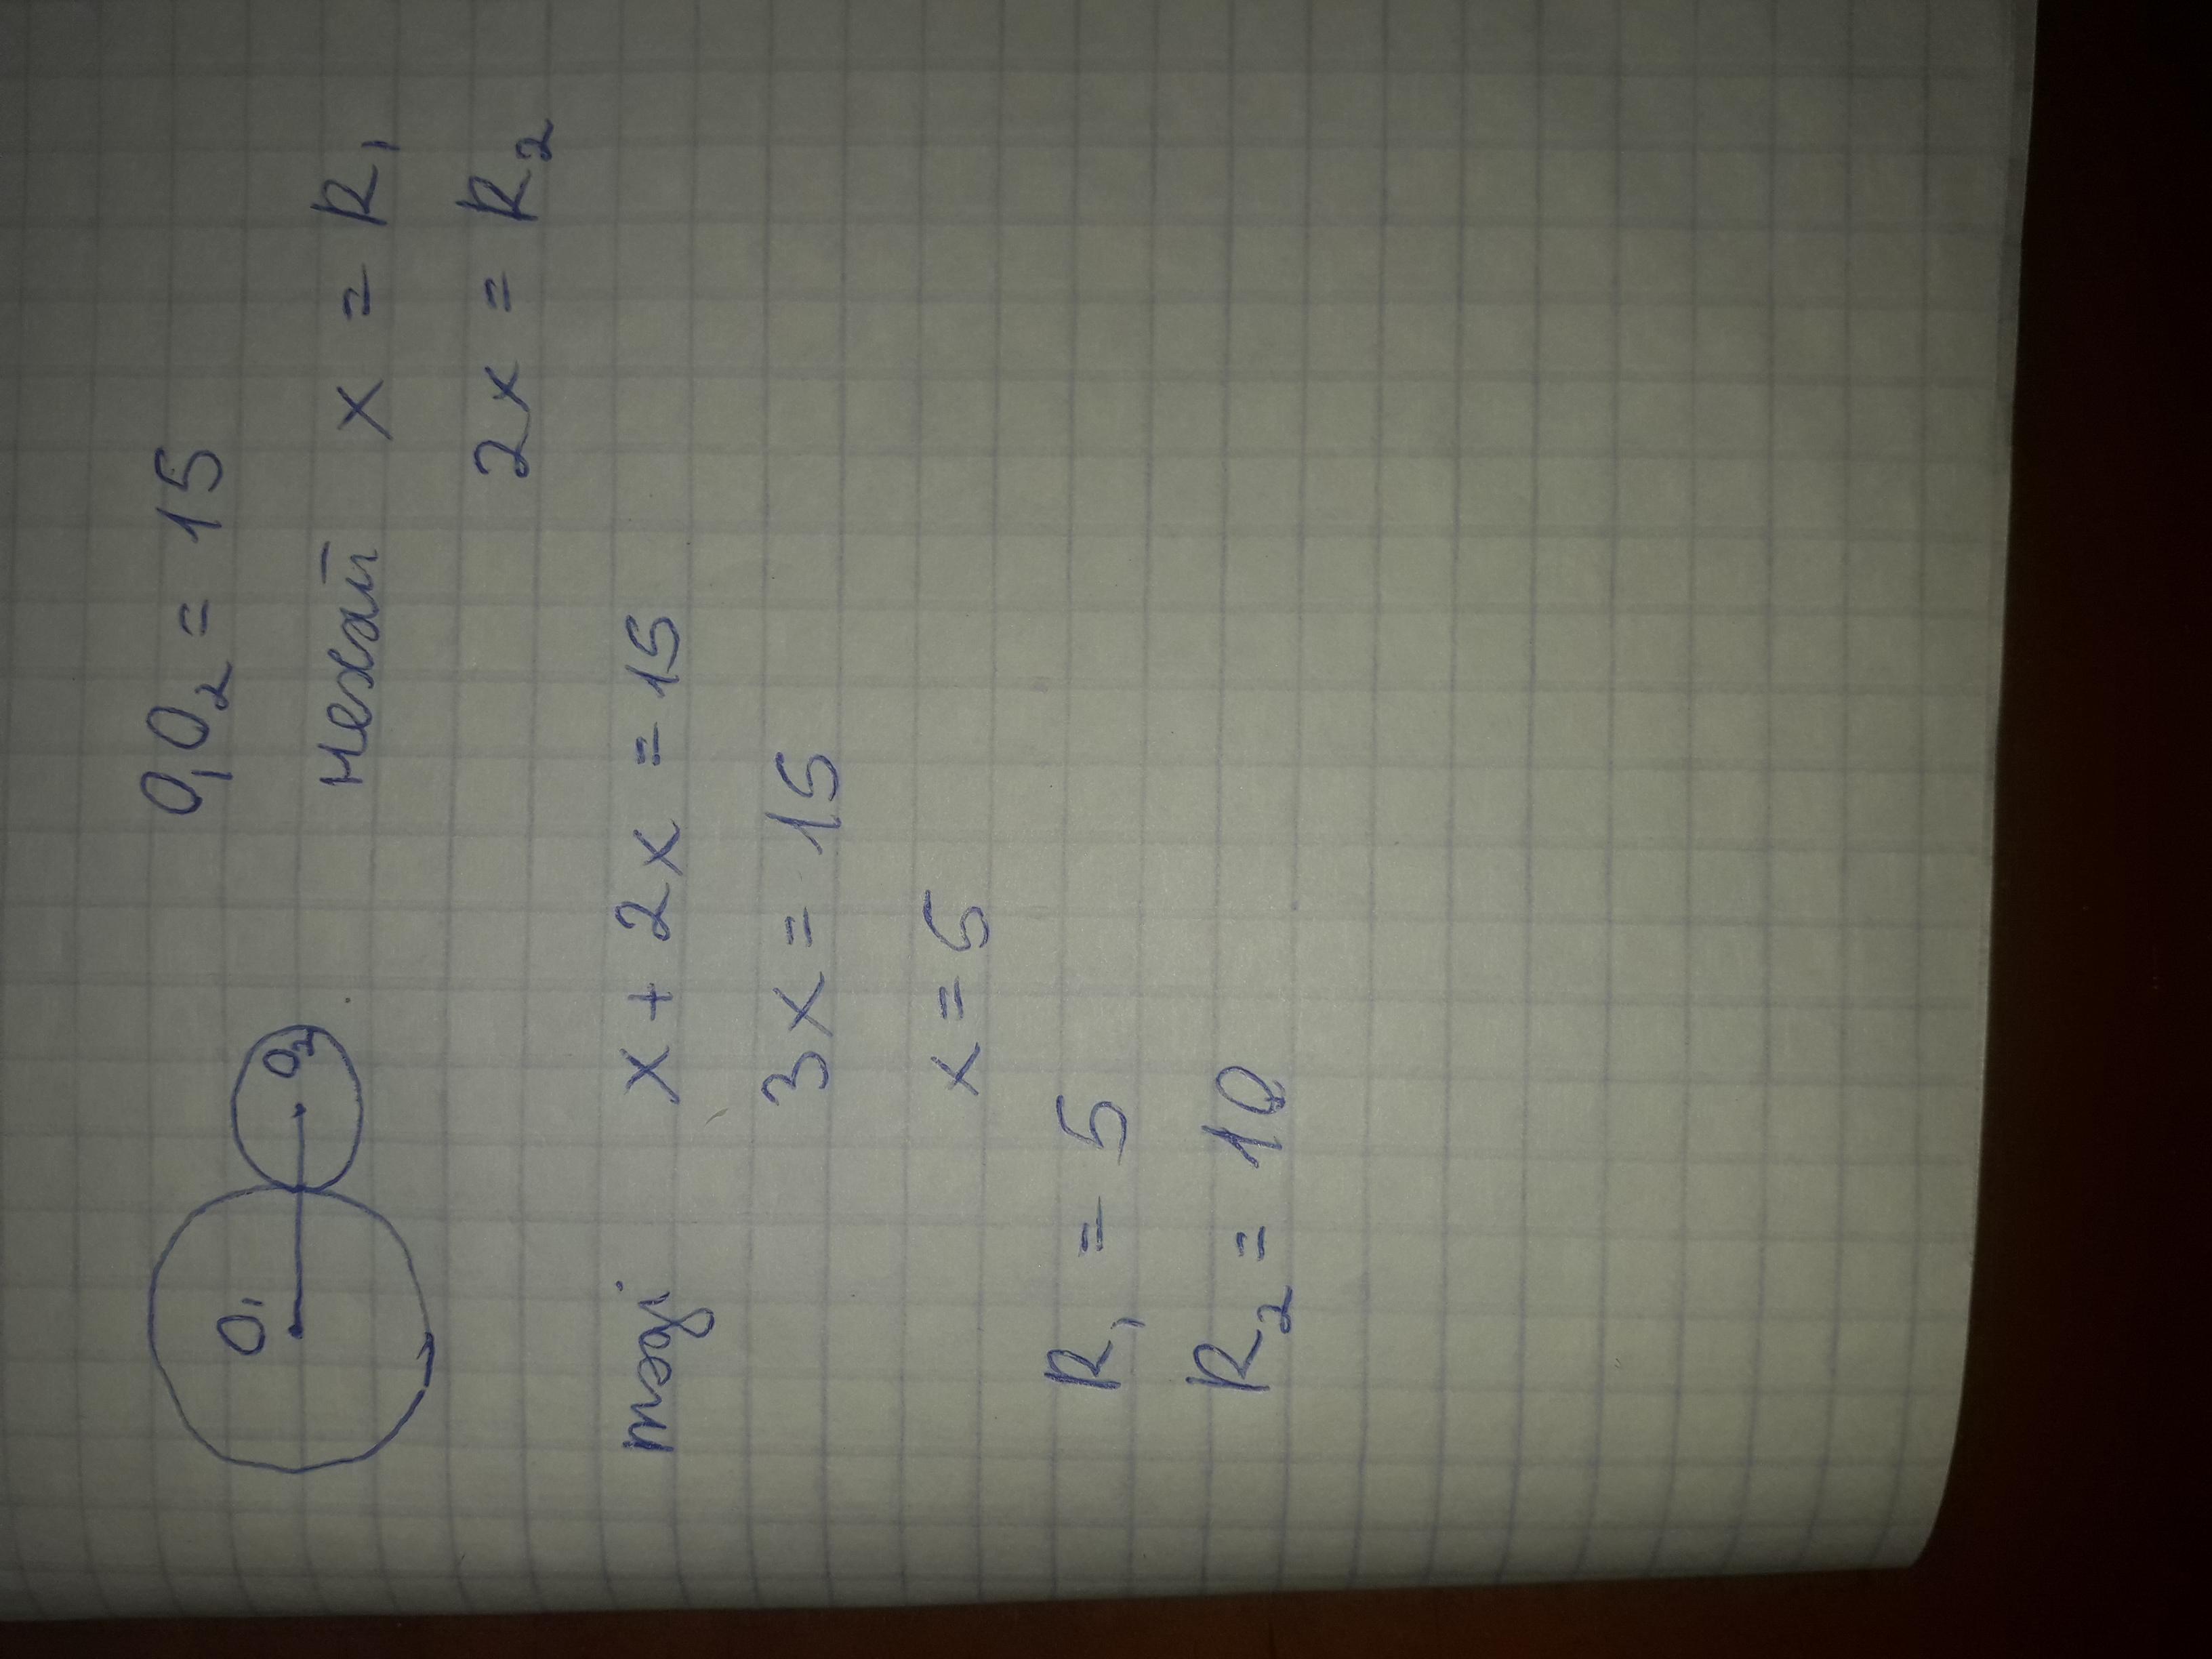 O₁ O₂
O₁O₂ = 15
нехай x = R₁
2x = R₂
тоді x + 2x = 15
3x = 15
x = 5
R₁ = 5
R₂ = 10